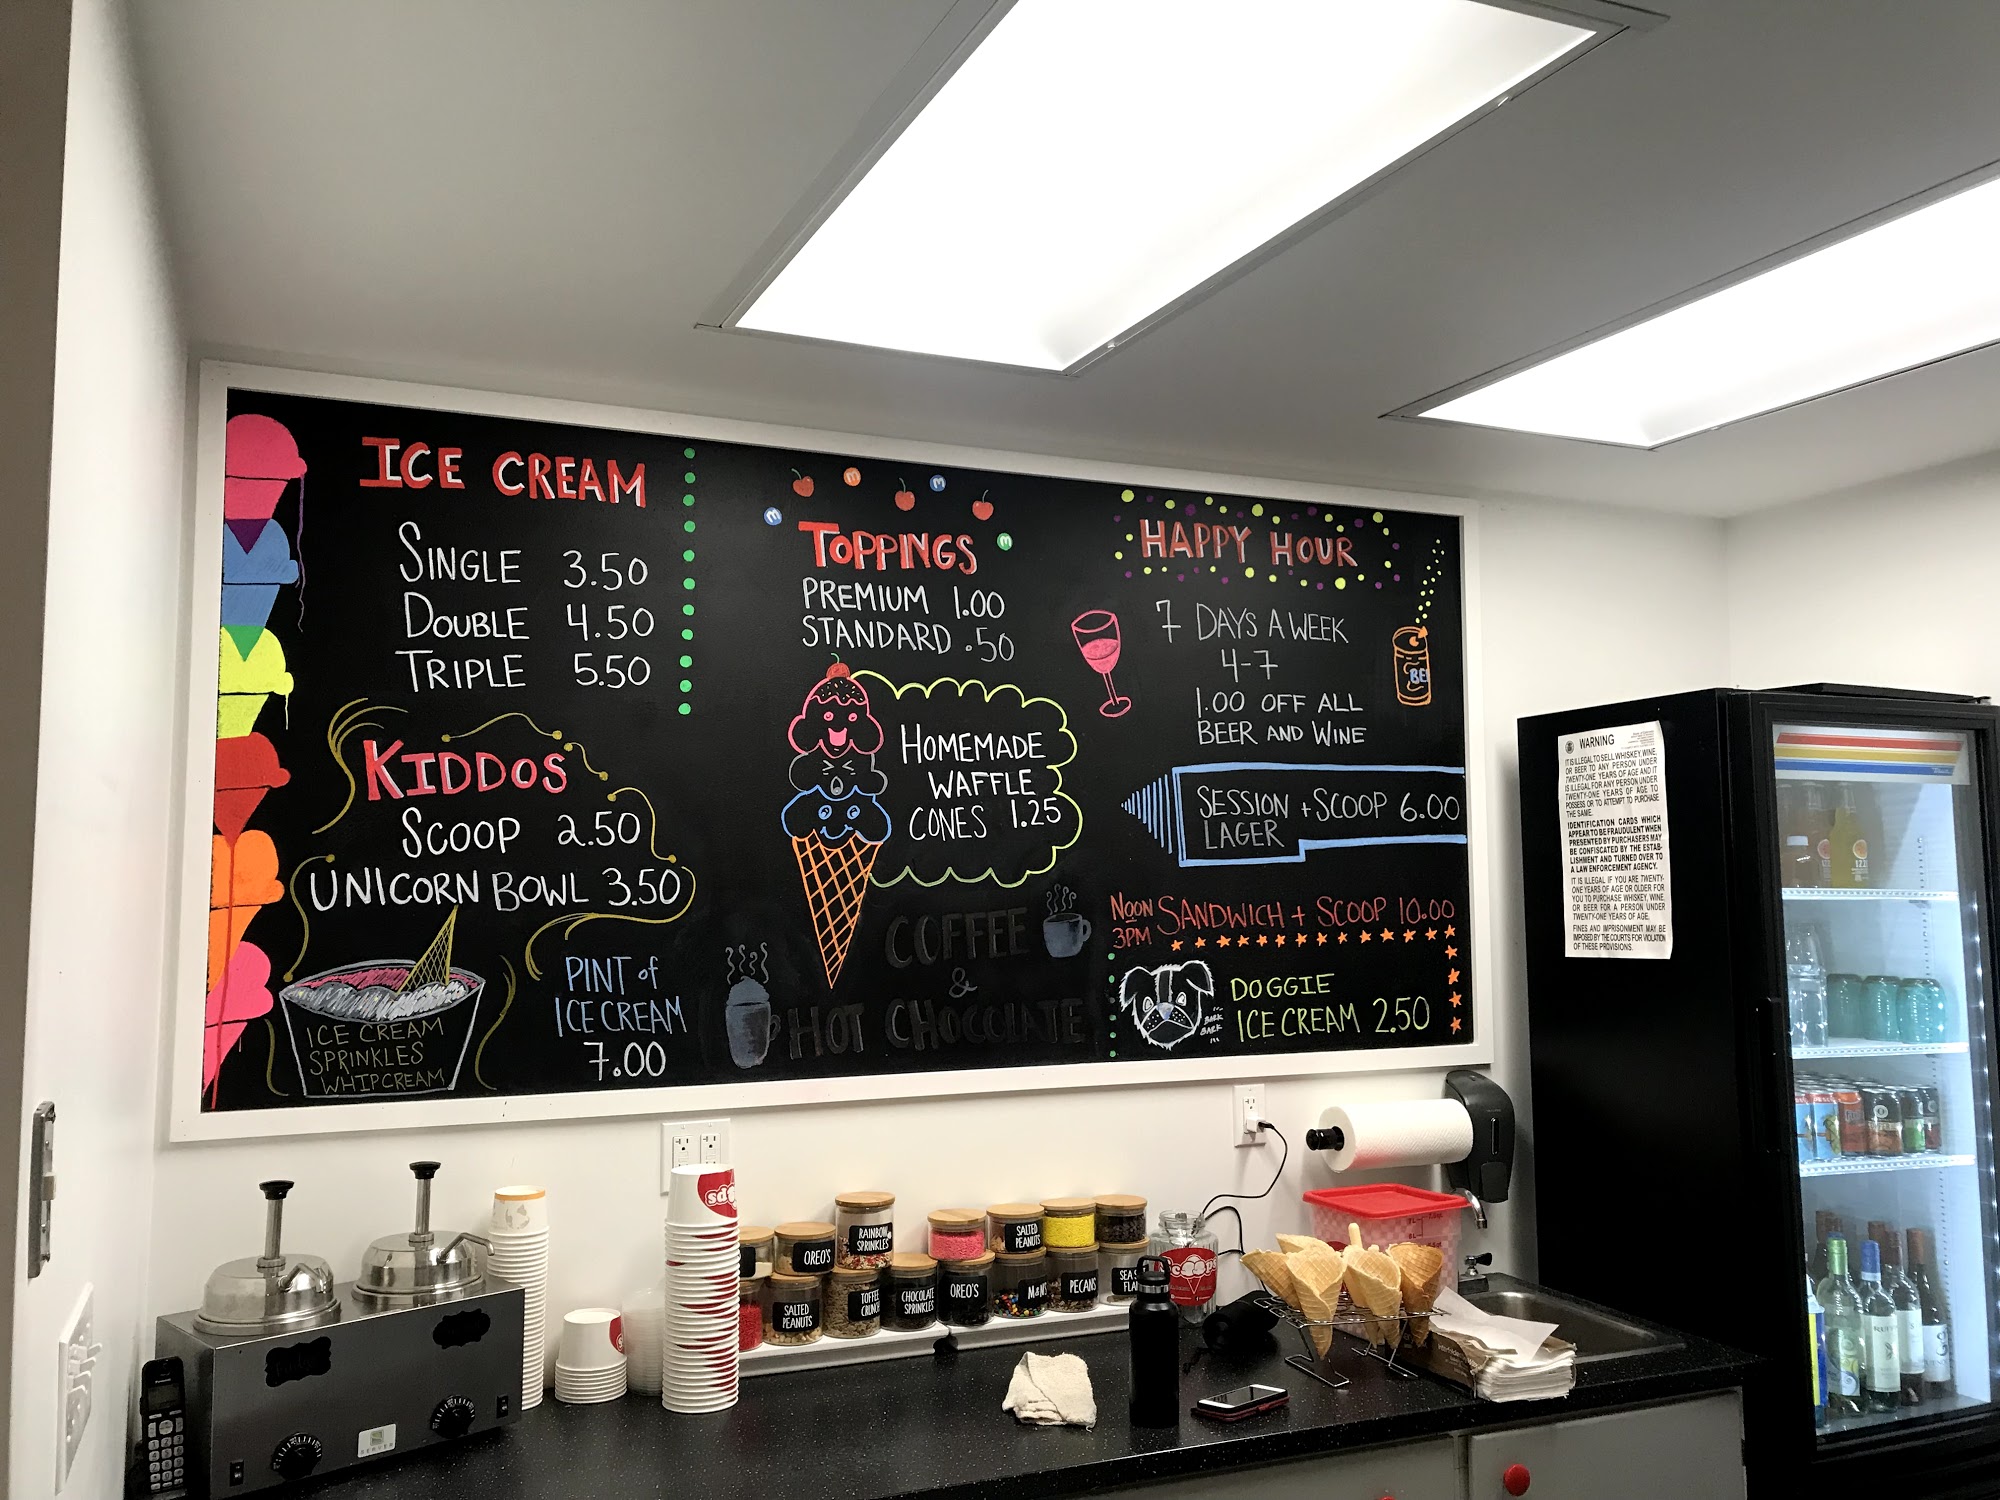 ICE CREAM
SINGLE 3.50
DOUBLE 4.50
TRIPLE 5.50
KIDDOS
SCOOP 2.50
UNICORN BOWL 3.50
ICE CREAM
SPRINKLES
WHIPCREAM
PINT of
ICE CREAM
7.00
TOPPINGS
PREMIUM 1.00
STANDARD .50
HOMEMADE
WAFFLE
CONES 1.25
COFFEE
&
HOT CHOCOLATE
HAPPY HOUR
7 DAYS A WEEK
4-7
1.00 OFF ALL
BEER AND WINE
SESSION + SCOOP 6.00
LAGER
NOON
3PM
SANDWICH + SCOOP 10.00
BARK
BARK
DOGGIE
ICE CREAM 2.50
WARNING
IT IS ILLEGAL TO SELL WHISKEY, WINE,
OR BEER TO ANY PERSON UNDER
TWENTY-ONE YEARS OF AGE AND IT
IS ILLEGAL FOR ANY PERSON UNDER
TWENTY-ONE YEARS OF AGE TO
POSSESS OR TO ATTEMPT TO PURCHASE
THE SAME.
IDENTIFICATION CARDS WHICH
APPEAR TO BE FRAUDULENT WHEN
PRESENTED BY PURCHASERS MAY
BE CONFISCATED BY THE ESTAB-
LISHMENT AND TURNED OVER TO
A LAW ENFORCEMENT AGENCY.
IT IS ILLEGAL IF YOU ARE TWENTY-
ONE YEARS OF AGE OR OLDER FOR
YOU TO PURCHASE WHISKEY, WINE,
OR BEER FOR A PERSON UNDER
TWENTY-ONE YEARS OF AGE.
FINES AND IMPRISONMENT MAY BE
IMPOSED BY THE COURTS FOR VIOLATION
OF THESE PROVISIONS.
OREO'S
RAINBOW
SPRINKLES
SALTED
PEANUTS
SALTED
PEANUTS
TOFFEE
CRUNCH
CHOCOLATE
SPRINKLES
OREO'S
M&M'S
PECANS
SEA S
FLA